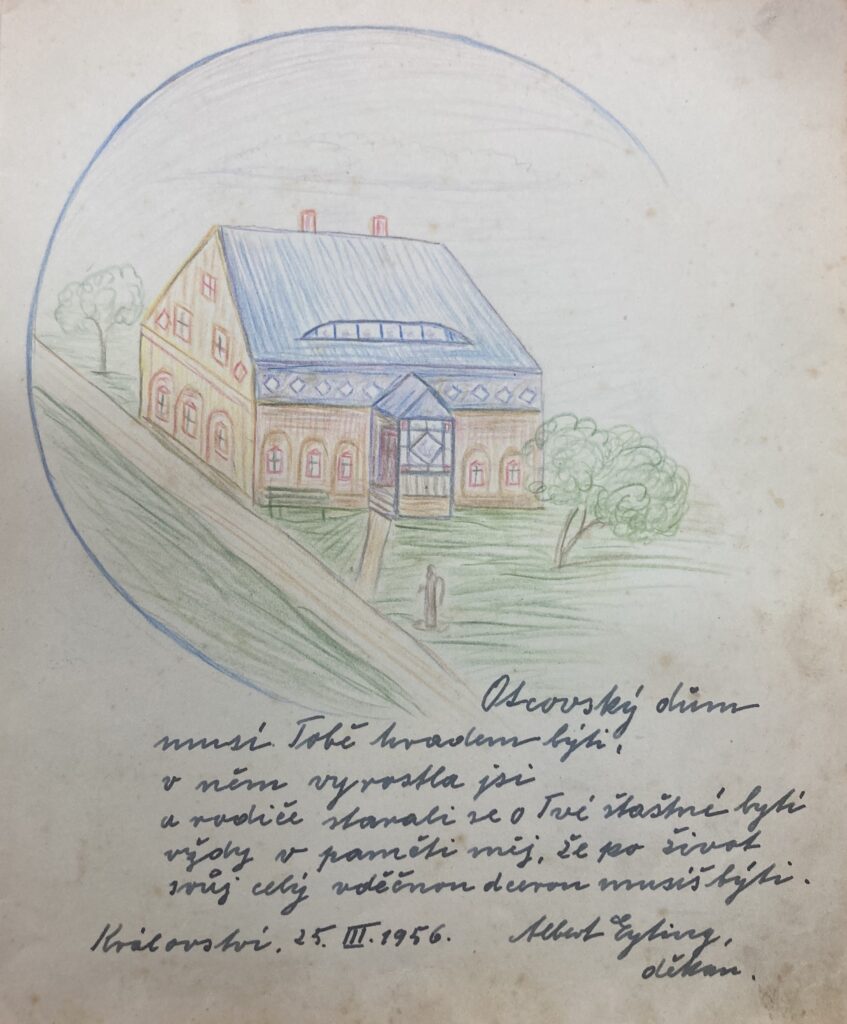 Otcovský dům
musí Tobě hradem býti,
v něm vyrostla jsi
a rodiče starali se o Tvé šťastné bytí
vždy v paměti měj, že po život
svůj celý vděčnou dcerou musíš býti.
Království, 25. III. 1956. Albert Eyting,
děkan.